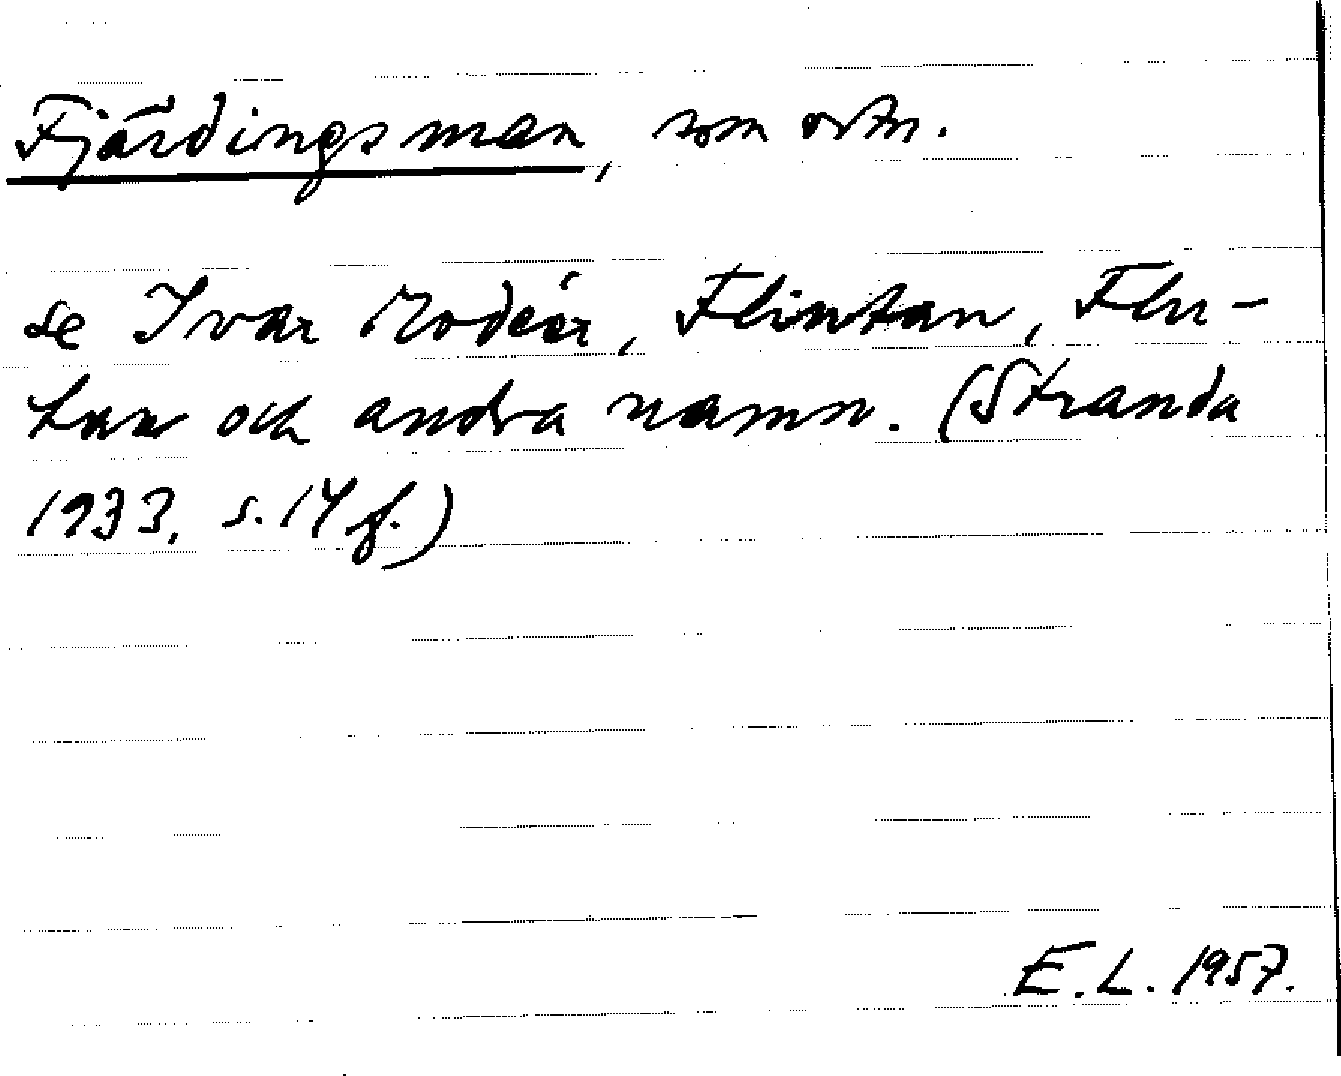 Fjärdingsman, som ortn.
se Ivar Modéer, Flintan, Flu-
tan och andra namn. (Stranda
1933, s. 14 f.)
E.L. 1957.